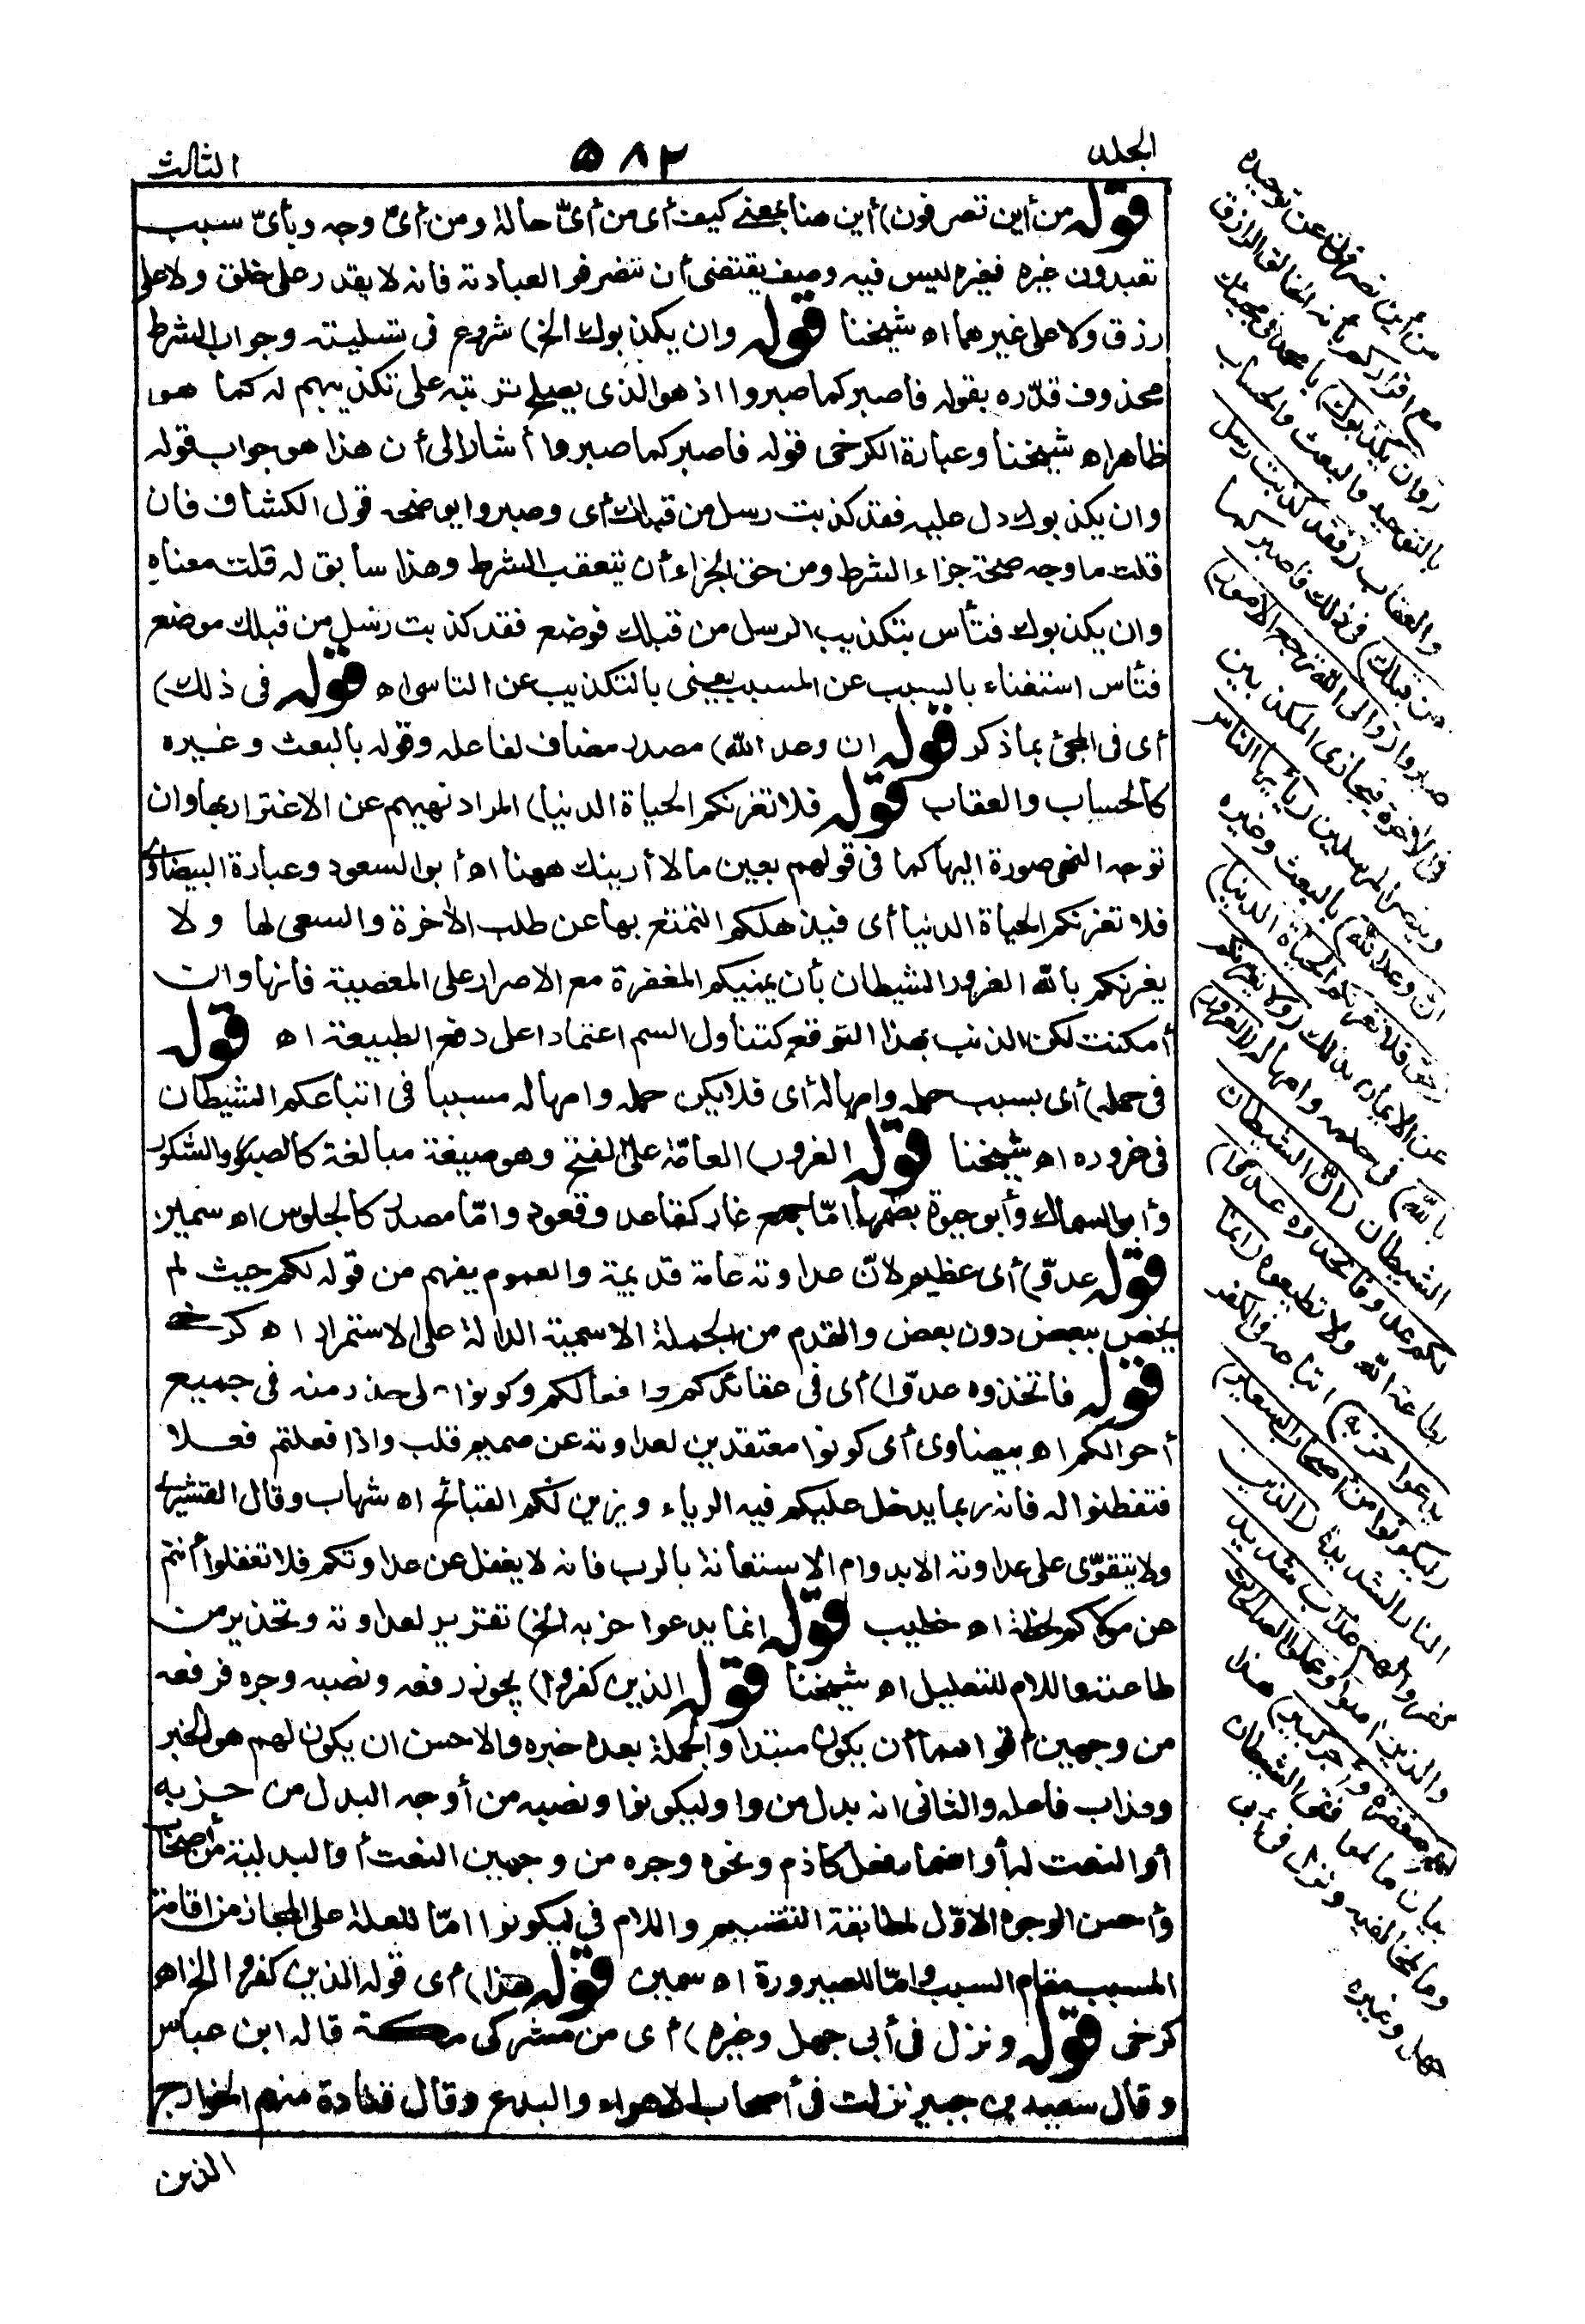 الجلد
٥٨٢
الثالث
قوله من أين تصرفون) أين هنا بمعنى كيف أى من أىّ حالة ومن أىّ وجه وبأىّ سبب
تعبدون غيره فغيره ليس فيه وصف يقتضى أن تتصرفوا لعبادته فانه لا يقدر على خلق ولا على
رزق ولا على غيرهما اه شيخنا قوله وان يكذبوك الخ) شروع فى تسليته وجواب الشرط
محذوف قدّره بقوله فاصبر كما صبروا اذ هو الذى يصلح ترتبه على تكذيبهم له كما هو
ظاهر اه شيخنا وعبارة الكرخى قوله فاصبر كما صبروا أشار الى أن هذا هو جواب قوله
وان يكذبوك دل عليه فقد كذبت رسل من قبلك أى وصبروا يوضحه قول الكشاف فان
قلت ما وجه صحة جزاء الشرط ومن حق الجزاء أن يتعقب الشرط وهذا سابق له قلت معناه
وان يكذبوك فتأس بتكذيب الرسل من قبلك فوضع فقد كذبت رسل من قبلك موضع
فتأس استغناء بالسبب عن المسبب يعنى بالتكذيب عن التاسى اه قوله فى ذلك)
أى فى المجئ بما ذكر قوله ان وعد الله) مصدر مضاف لفاعله وقوله بالبعث وغيره
كالحساب والعقاب قوله فلا تغرنكم الحياة الدنيا) المراد نهيهم عن الاغترار بها وان
توجه النهى صورة اليها كما فى قولهم بعين ما لا أرينك ههنا اه أبو السعود وعبارة البيضاوى
فلا تغرنكم الحياة الدنيا أى فيذهلكم التمتع بها عن طلب الآخرة والسعى لها ولا
يغرنكم بالله الغرور الشيطان بأن يمنيكم المغفرة مع الاصرار على المعصية فانها وان
أمكنت لكن الذنب بهذا التوقع كتناول السم اعتمادا على دفع الطبيعة اه قوله
فى حمله) أى بسبب حمله وامهاله أى فلا يكن حمله وامهاله مسببا فى اتباعكم الشيطان
فى غروره اه شيخنا قوله الغرور) العامّة على الفتح وهو صيغة مبالغة كالصبور والشكور
وأبو السماك وأبو حيوة بضمها امّا جمع غار كقاعد وقعود وامّا مصدر كالجلوس اه سمين
قوله عدوّ) أى عظيم لانّ عداوته عامة قديمة والعموم يفهم من قوله لكم حيث لم
يخص ببعض دون بعض والقدم من الجملة الاسمية الدالة على الاستمرار اه كرخى
قوله فاتخذوه عدوّا) أى فى عقائدكم وافعالكم وكونوا على حذر منه فى جميع
أحوالكم اه بيضاوى أى كونوا معتقدين لعداوته عن صميم قلب واذا فعلتم فعلا
فتفطنوا له فانه ربما يدخل عليكم فيه الرياء ويزين لكم القبائح اه شهاب وقال القشيرى
ولا يتقوّى على عداوته الا بدوام الاستعانة بالرب فانه لا يغفل عن عداوتكم فلا تغفلوا أنتم
عن مولاكم لحظة اه خطيب قوله انما يدعوا حزبه الخ) تقرير لعداوته وتحذير من
طاعته واللام للتعليل اه شيخنا قوله الذين كفروا) يجوز رفعه ونصبه وجره فرفعه
من وجهين أقواهما أن يكون مبتدا والجملة بعده خبره والاحسن ان يكون لهم هو الخبر
وعذاب فاعله والثانى انه بدل من واو ليكونوا ونصبه من أوجه البدل من حزبه
أو النعت له أو اضمار فعل كاذم ونحوه وجره من وجهين النعت أو البدلية من أصحاب
وأحسن الوجوه الاوّل لمطابقة التقسيم واللام فى ليكونوا امّا للعلة على المجاز من اقامة
المسبب مقام السبب وامّا للصيرورة اه سمين قوله هذا) أى قوله الذين كفروا الخ اه
كرخى قوله ونزل فى أبى جهل وغيره) أى من مشركى مكة قاله ابن عباس
وقال سعيد بن جبير نزلت فى أصحاب الاهواء والبدع وقال قتادة منهم الخوارج
الذين
من أين تصرفون عن توحيده
مع اقراركم بأنه الخالق الرازق
(وان يكذبوك) يا محمد فى مجيئك
بالتوحيد والبعث والحساب
والعقاب (فقد كذبت رسل
من قبلك) فى ذلك فاصبر كما
صبروا (والى الله ترجع الامور)
فى الآخرة فيجازى المكذبين
وينصر المرسلين (يأيها الناس
ان وعد الله) بالبعث وغيره
(حق فلا تغرنكم الحياة الدنيا)
عن الايمان بذلك (ولا يغرنكم
بالله) فى حلمه وامهاله (الغرور)
الشيطان (ان الشيطان
لكم عدو فاتخذوه عدوا)
بطاعة الله ولا تطيعوه (انما
يدعوا حزبه) اتباعه فى الكفر
(ليكونوا من أصحاب السعير)
النار الشديدة (الذين
كفروا لهم عذاب شديد
والذين آمنوا وعملوا الصالحات
لهم مغفرة وأجر كبير) هذا
بيان ما لموافقى الشيطان
وما لمخالفيه ونزل فى أبى
جهل وغيره